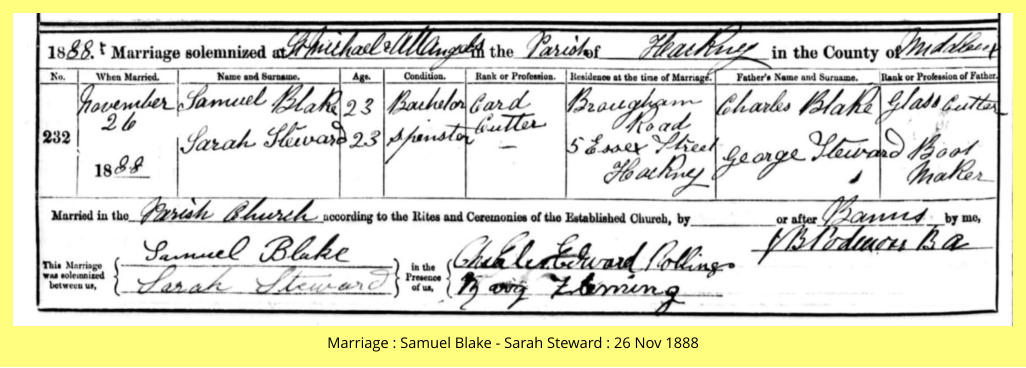 1888. Marriage solemnized at St Michael & All Angels in the Parish of Hackney in the County of Middlesex
No. When Married. Name and Surname. Age. Condition. Rank or Profession. Residence at the time of Marriage. Father's Name and Surname. Rank or Profession of Father.
232 November 26 1888
Samuel Blake 23 Bachelor Card Cutter Brougham Road Charles Blake Glass Cutter
Sarah Steward 23 Spinster — 5 Essex Street Hackney George Steward Boot Maker
Married in the Parish Church according to the Rites and Ceremonies of the Established Church, by or after Banns by me,
B A
This Marriage was solemnized between us,
Samuel Blake
Sarah Steward
in the Presence of us,
Charles Edward Collings
Fleming
Marriage : Samuel Blake - Sarah Steward : 26 Nov 1888